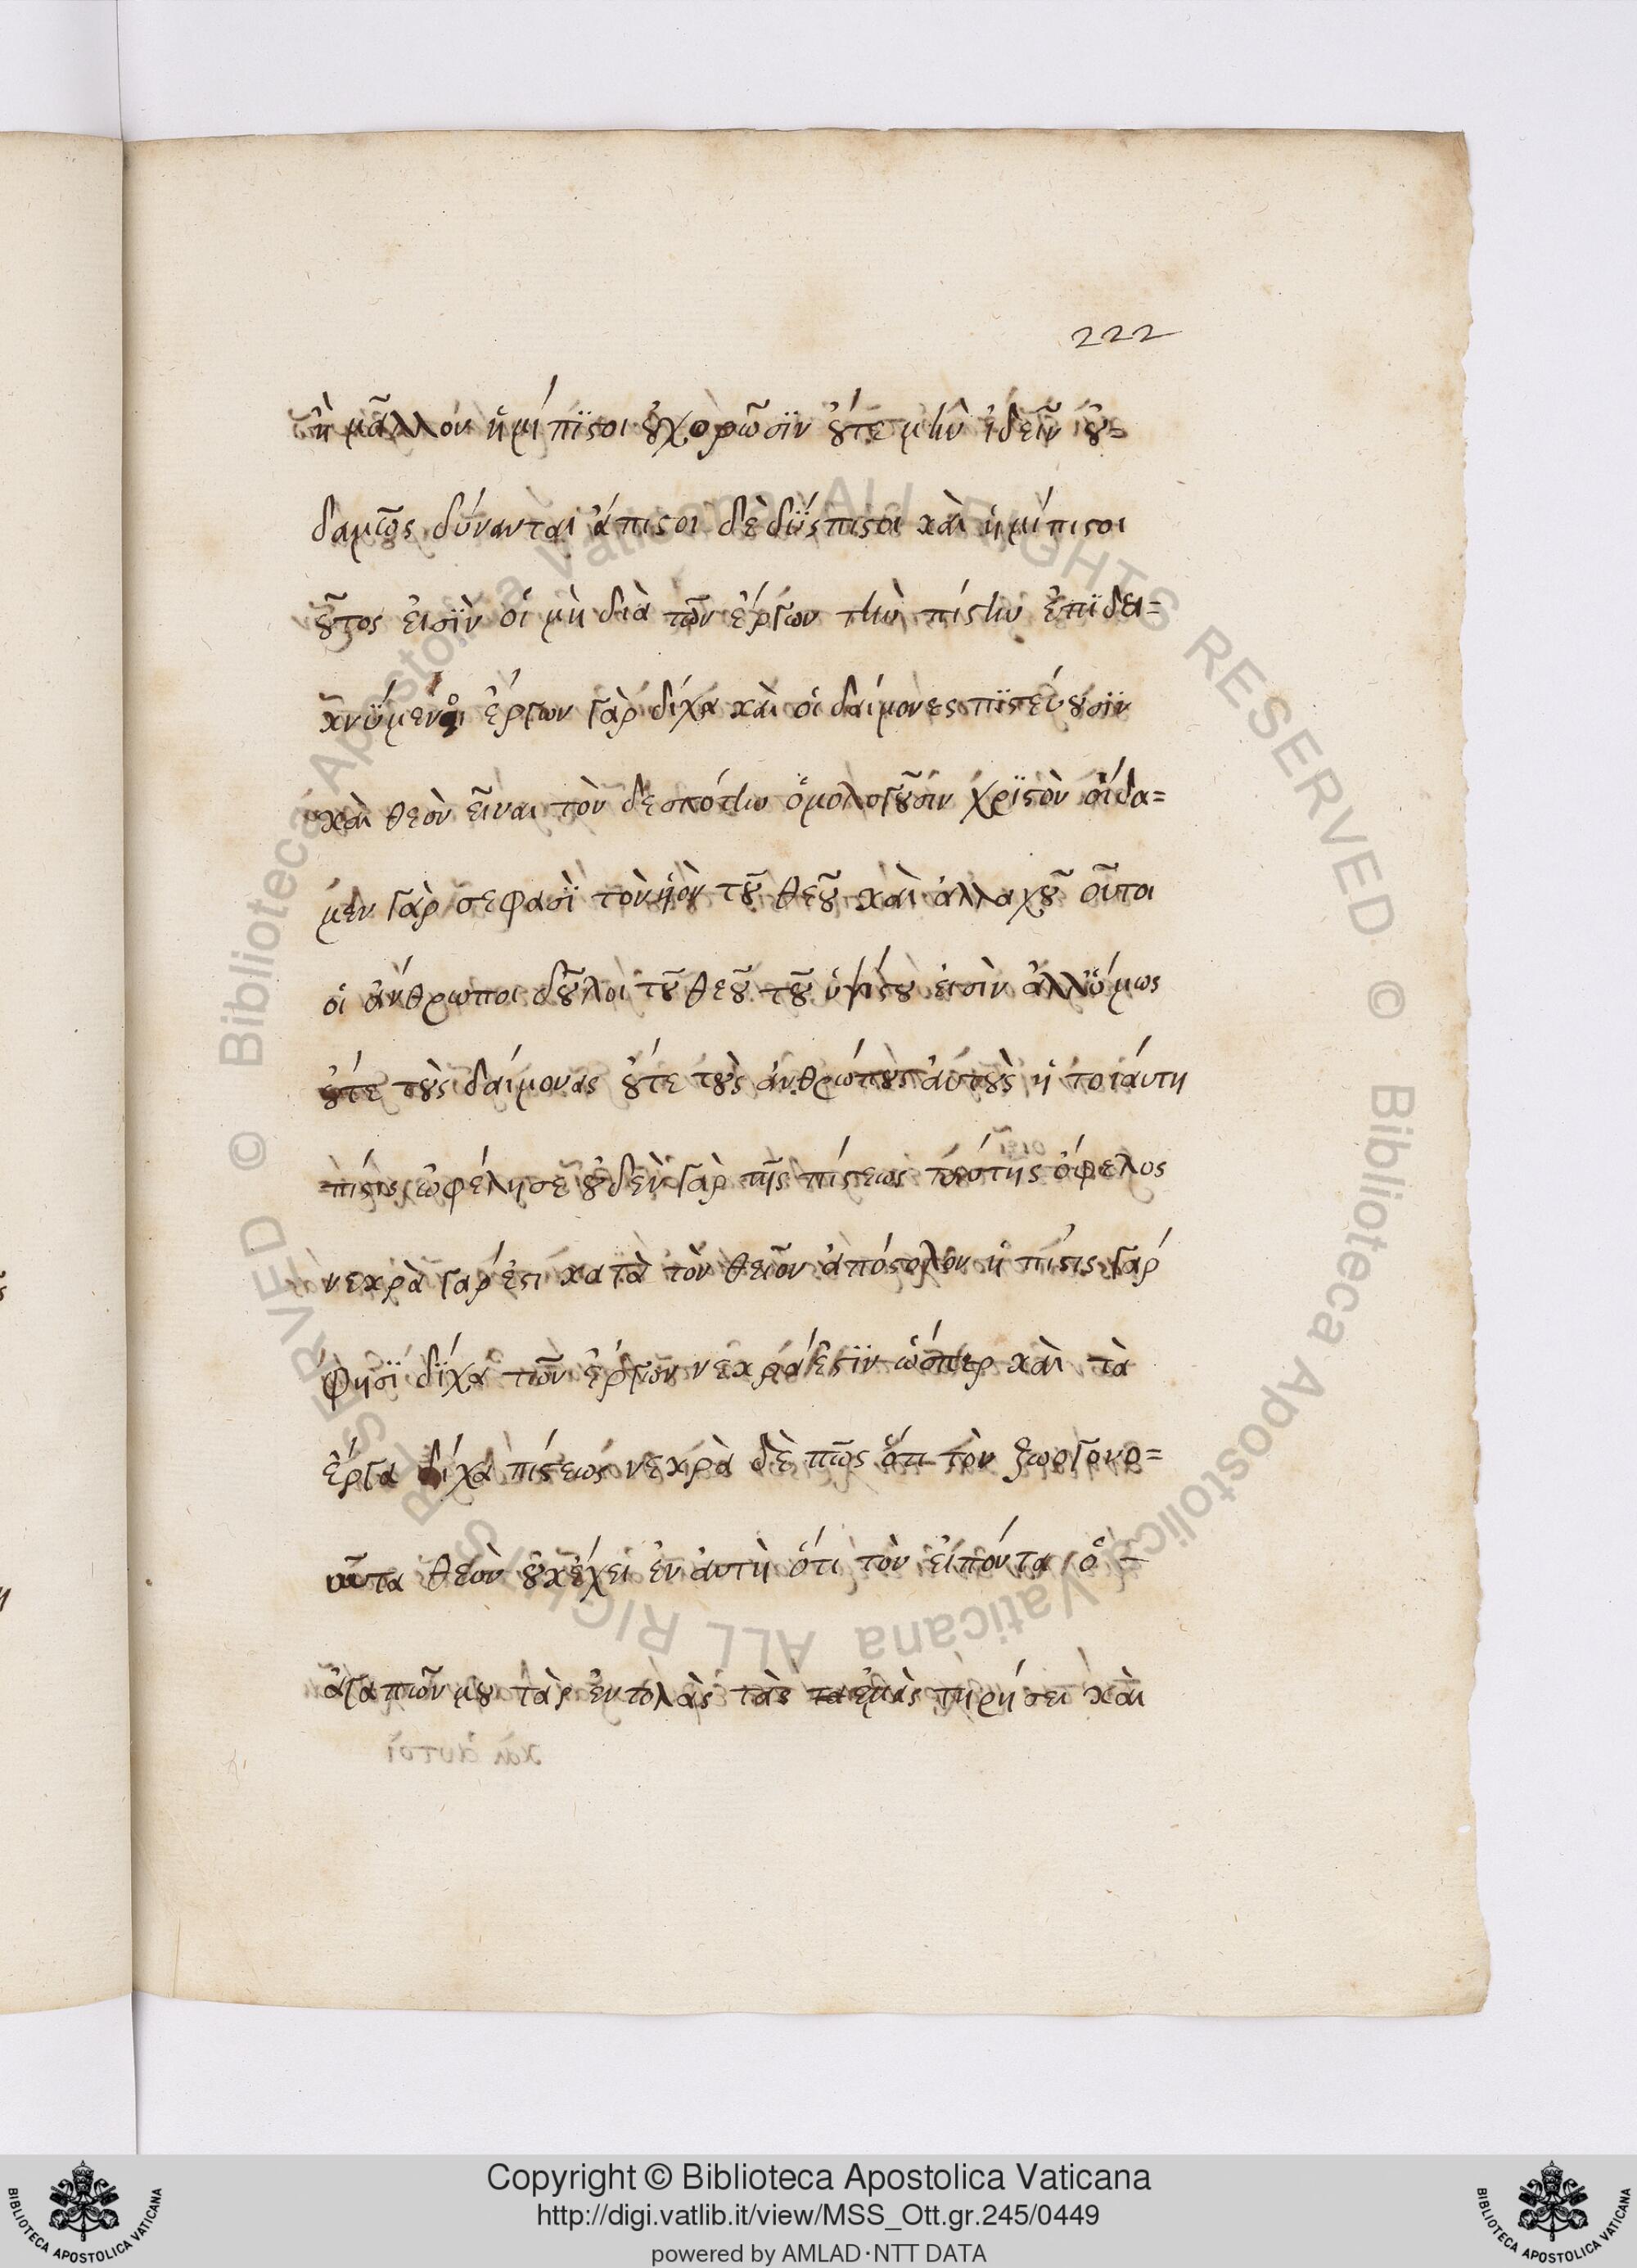 222
ἢ μᾶλλον ἡμίπϊστοι οὐχ ὁρῶσϊν οὔτε μὴν ἰδεῖν οὐ=
δαμῶς δύνανται ἄπιστοι δὲ δύσπιστοι καὶ ἡμίπιστοι
οὗτος εἰσϊν οἱ μὴ διὰ τῶν ἔργων τὴν πίστην ἐπϊδει=
κνϋμενοι ἔργων γὰρ δίχα καὶ οἱ δαίμονες πϊστεύουσϊν
καὶ θεὸν εἶναι τὸν δεσπότην ὁμολογοῦσίν χρϊστὸν οἴδα=
μέν γὰρ σε φασὶ τὸν ἡὸν τοῦ θεοῦ καὶ ἀλλαχοῦ οὗτοι
οἱ ἄνθρωποι δοῦλοι τοῦ θεοῦ τοῦ ὑψίστου εἰσὶν ἀλλ ὅμως
οὔτε τοὺς δαίμονας οὔτε τοὺς ἀνθρώπους αὐτοὺς ἡ τοιάυτη
πίστις ὠφέλησε οὐδὲν γὰρ τῆς πίστεως τοιάυτης ὄφελος
νεκρὰ γάρ ἐστι κατὰ τὸν θεῖον ἀπόστολον ἡ πίστις γάρ
φησϊ δίχα τῶν ἔργων νεκρά ἐστϊν ὥσπερ καὶ τὰ
ἔργα δίχα πίστεως νεκρὰ δὲ πῶς ὅτι τὸν ζωογονο=
ῦντα θεὸν οὐκ ἔχει ἐν ἀυτὴ ὅτι τὸν εἰπόντα ὁ -
ἀγαπῶν μου τὰς ἐντολὰς τὰς ἐμὰς τηρήσει καὶ
Copyright © Biblioteca Apostolica Vaticana
http://digi.vatlib.it/view/MSS_Ott.gr.245/0449
powered by AMLAD·NTT DATA
BIBLIOTECA APOSTOLICA VATICANA
BIBLIOTECA APOSTOLICA VATICANA
© Biblioteca Apostolica Vaticana ALL RIGHTS RESERVED © Biblioteca Apostolica Vaticana ALL RIGHTS RESERVED